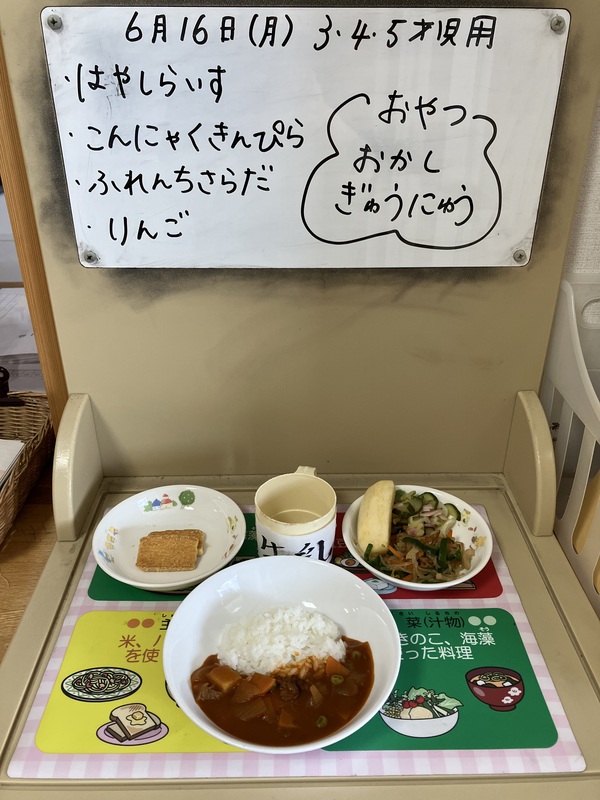 6月16日(月) 3・4・5才児用
・はやしらいす
・こんにゃくきんぴら
・ふれんちさらだ
・りんご
おやつ
おかし
ぎゅうにゅう
牛乳
米、
を使
菜(汁物)
きのこ、海藻
った料理